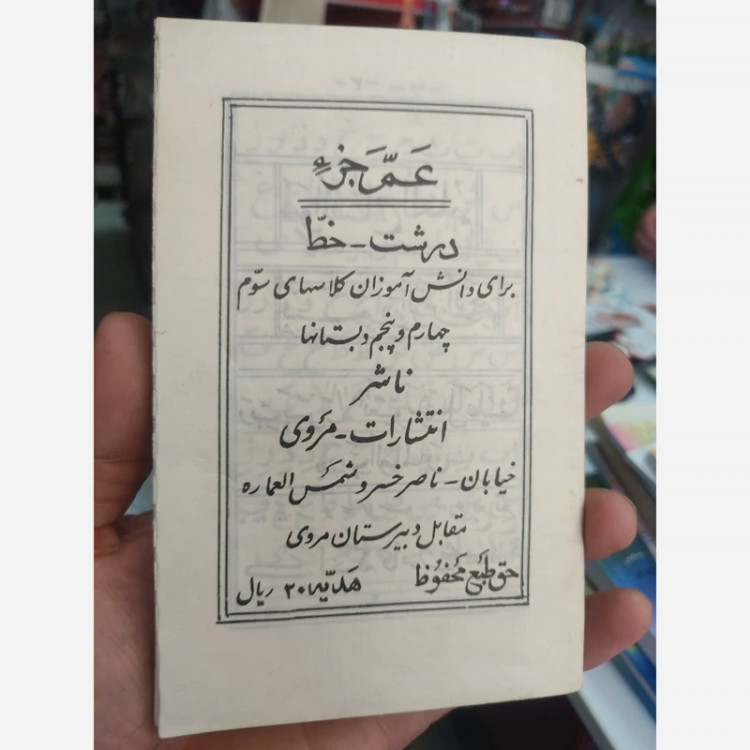 عَمَّ جَزءِ
درشت - خطّ
برای دانش آموزان کلاسهای سوّم
چهارم و پنجم دبستانها
ناشر
انتشارات - مروی
خیابان - ناصر خسرو شمس العماره
مقابل دبیرستان مروی
حق طبع محفوظ هدیّه ۲۰ ریال